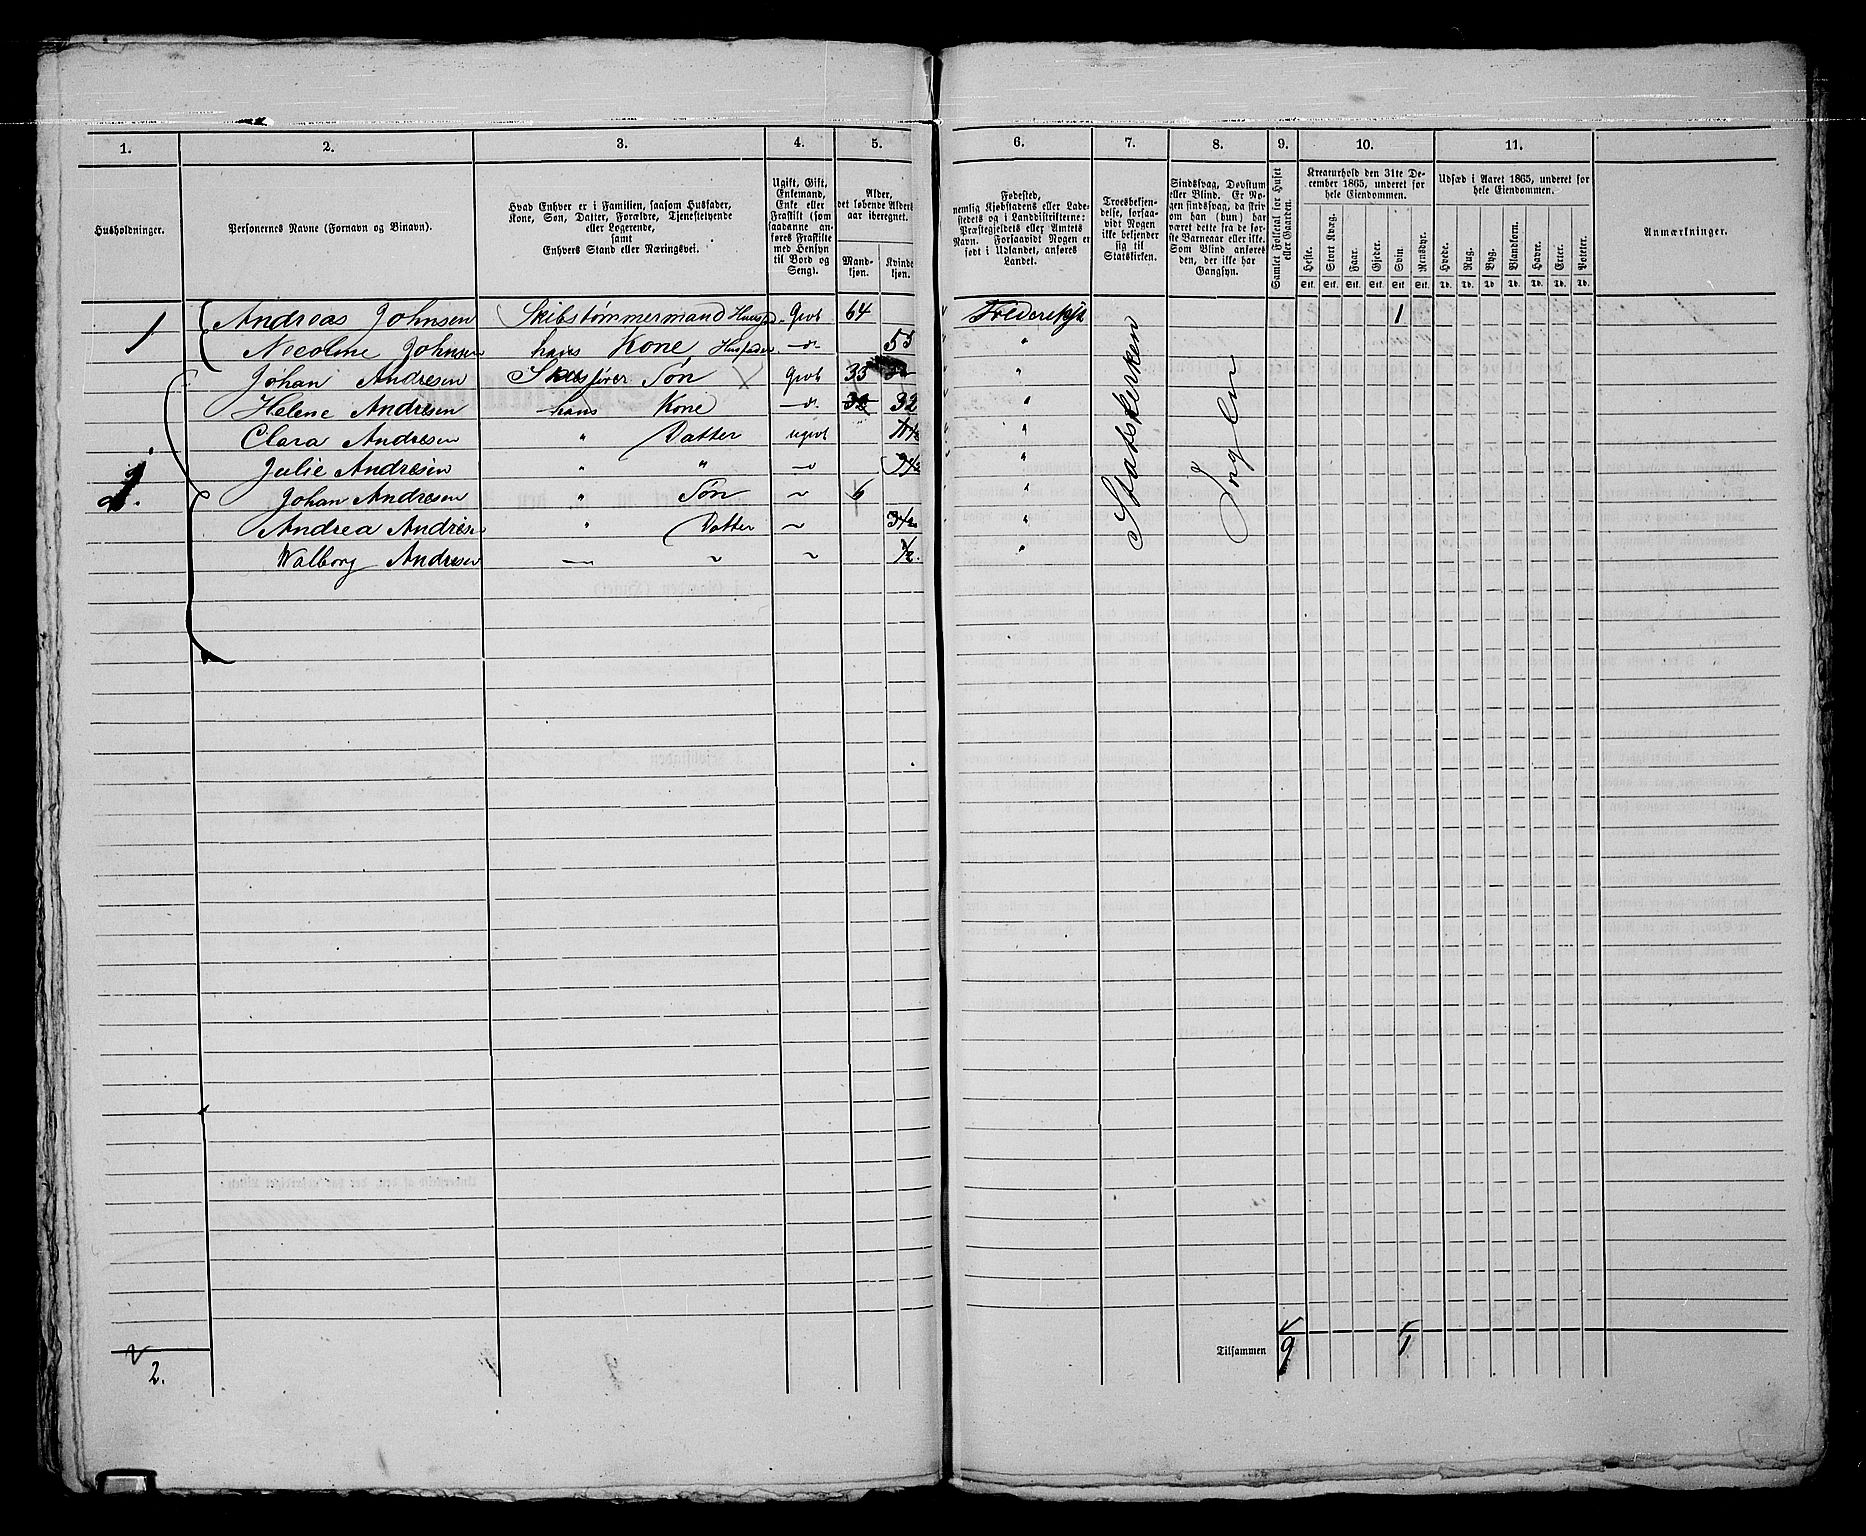 1. 2. 3. 4. 5. 6. 7. 8. 9. 10. 11.
Husholdninger.
Personernes Navne (Fornavn og Binavn).
Hvad Enhver er i Familien, saasom Husfader,
Kone, Søn, Datter, Forældre, Tjenestetyende
eller Logerende,
samt
Enhvers Stand eller Næringsvei.
Ugift, Gift,
Enkemand,
Enke eller
Fraskilt (som
saadanne an-
føres Fraskilte
med Hensyn
til Bord og
Seng).
Alder,
det løbende Alders-
aar iberegnet.
Mand-
kjøn.
Kvinde
kjøn.
Fødested,
nemlig Kjøbstadens eller Lade-
stedets og i Landdistrikterne:
Præstegjeldets eller Amtets
Navn. Forsaavidt Nogen er
født i Udlandet, anføres
Landet.
Troesbekjen-
delse, forsaa-
vidt Nogen
ikke bekjender
sig til
Statskirken.
Sindssvag, Døvstum
eller Blind. Er No-
gen sindssvag, da skriv
om han (hun) har
været dette fra de før-
ste Barneaar eller ikke.
Som Blind anføres
den, der ikke har
Gangsyn.
Samlet Folketal for Huset
eller Gaarden.
Kreaturhold den 31te De-
cember 1865, underet for
hele Eiendommen.
Heste. Stort Kvæg. Faar. Gjeder. Svin. Rensdyr.
Stk. Stk. Stk. Stk. Stk. Stk.
Udsæd i Aaret 1865, underet for
hele Eiendommen.
Hvede. Rug. Byg. Blandkorn. Havre. Erter. Poteter.
Td. Td. Td. Td. Td. Td. Td.
Anmærkninger.
1 Andreas Johnsen Skibstømmermand Givt 64 1
Nicoline Johnsen hans Kone Husfader -do 53 "
Johan Andresen Søn Givt 33 "
Helene Andresen hans Kone -do. 32 32 "
Clara Andresen " Datter ugivt "
Julie Andresen " " "
2. Johan Andresen " Søn 6 "
Andrea Andrese " Datter "
Walborg Andresen "
Statskirken
Ingen
2.
Tilsammen 9 1